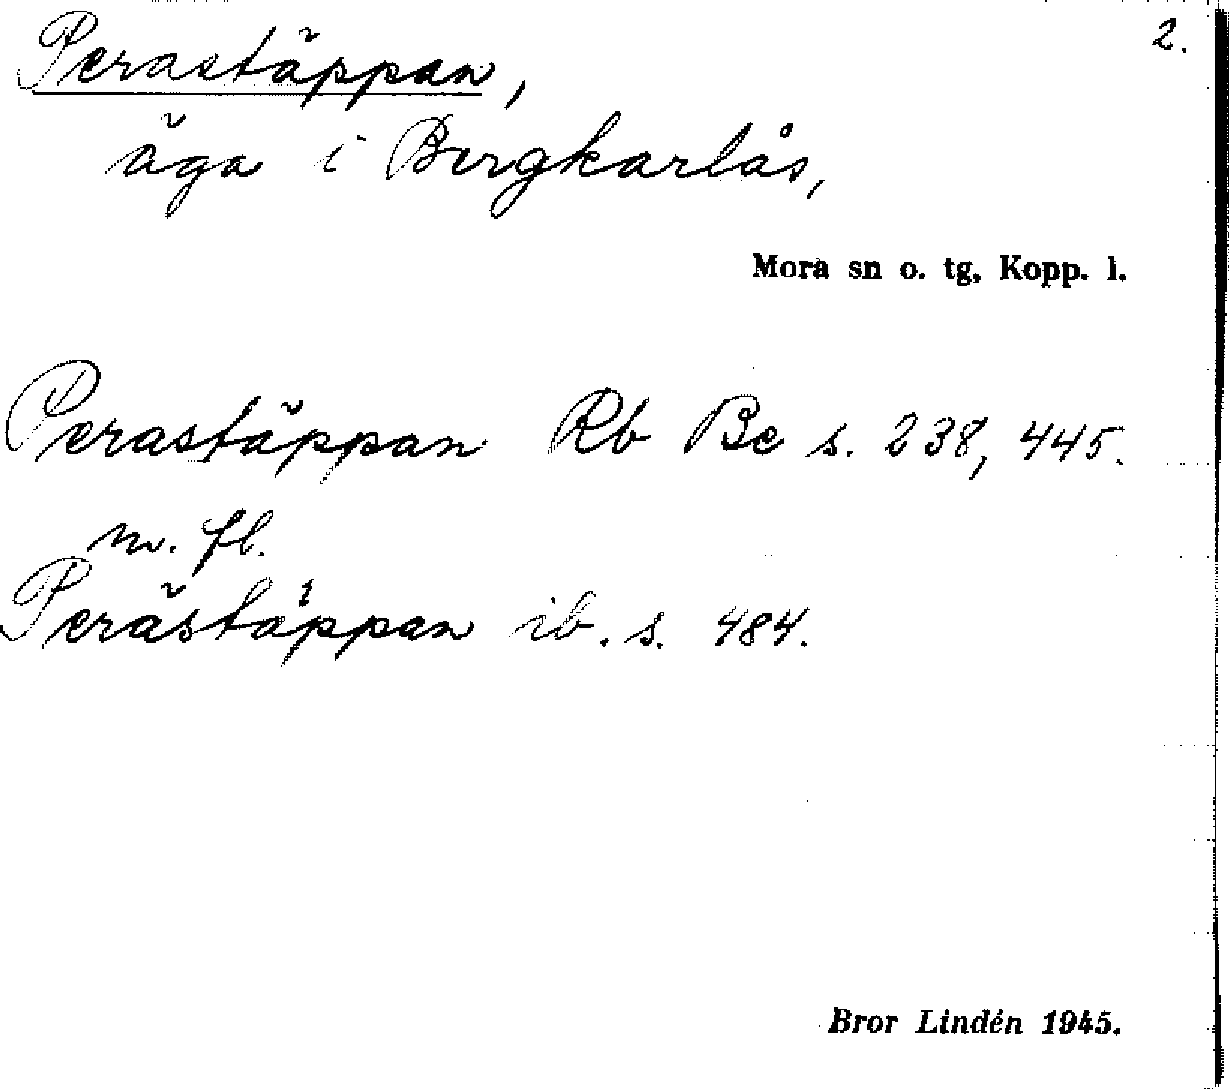 2.
Perastäppan,
äga i Bergkarlås,
Mora sn o. tg, Kopp. l.
Perastäppan Rb Be s. 238, 445.
m. fl.
Perästäppan ib. s. 484.
Bror Lindén 1945.